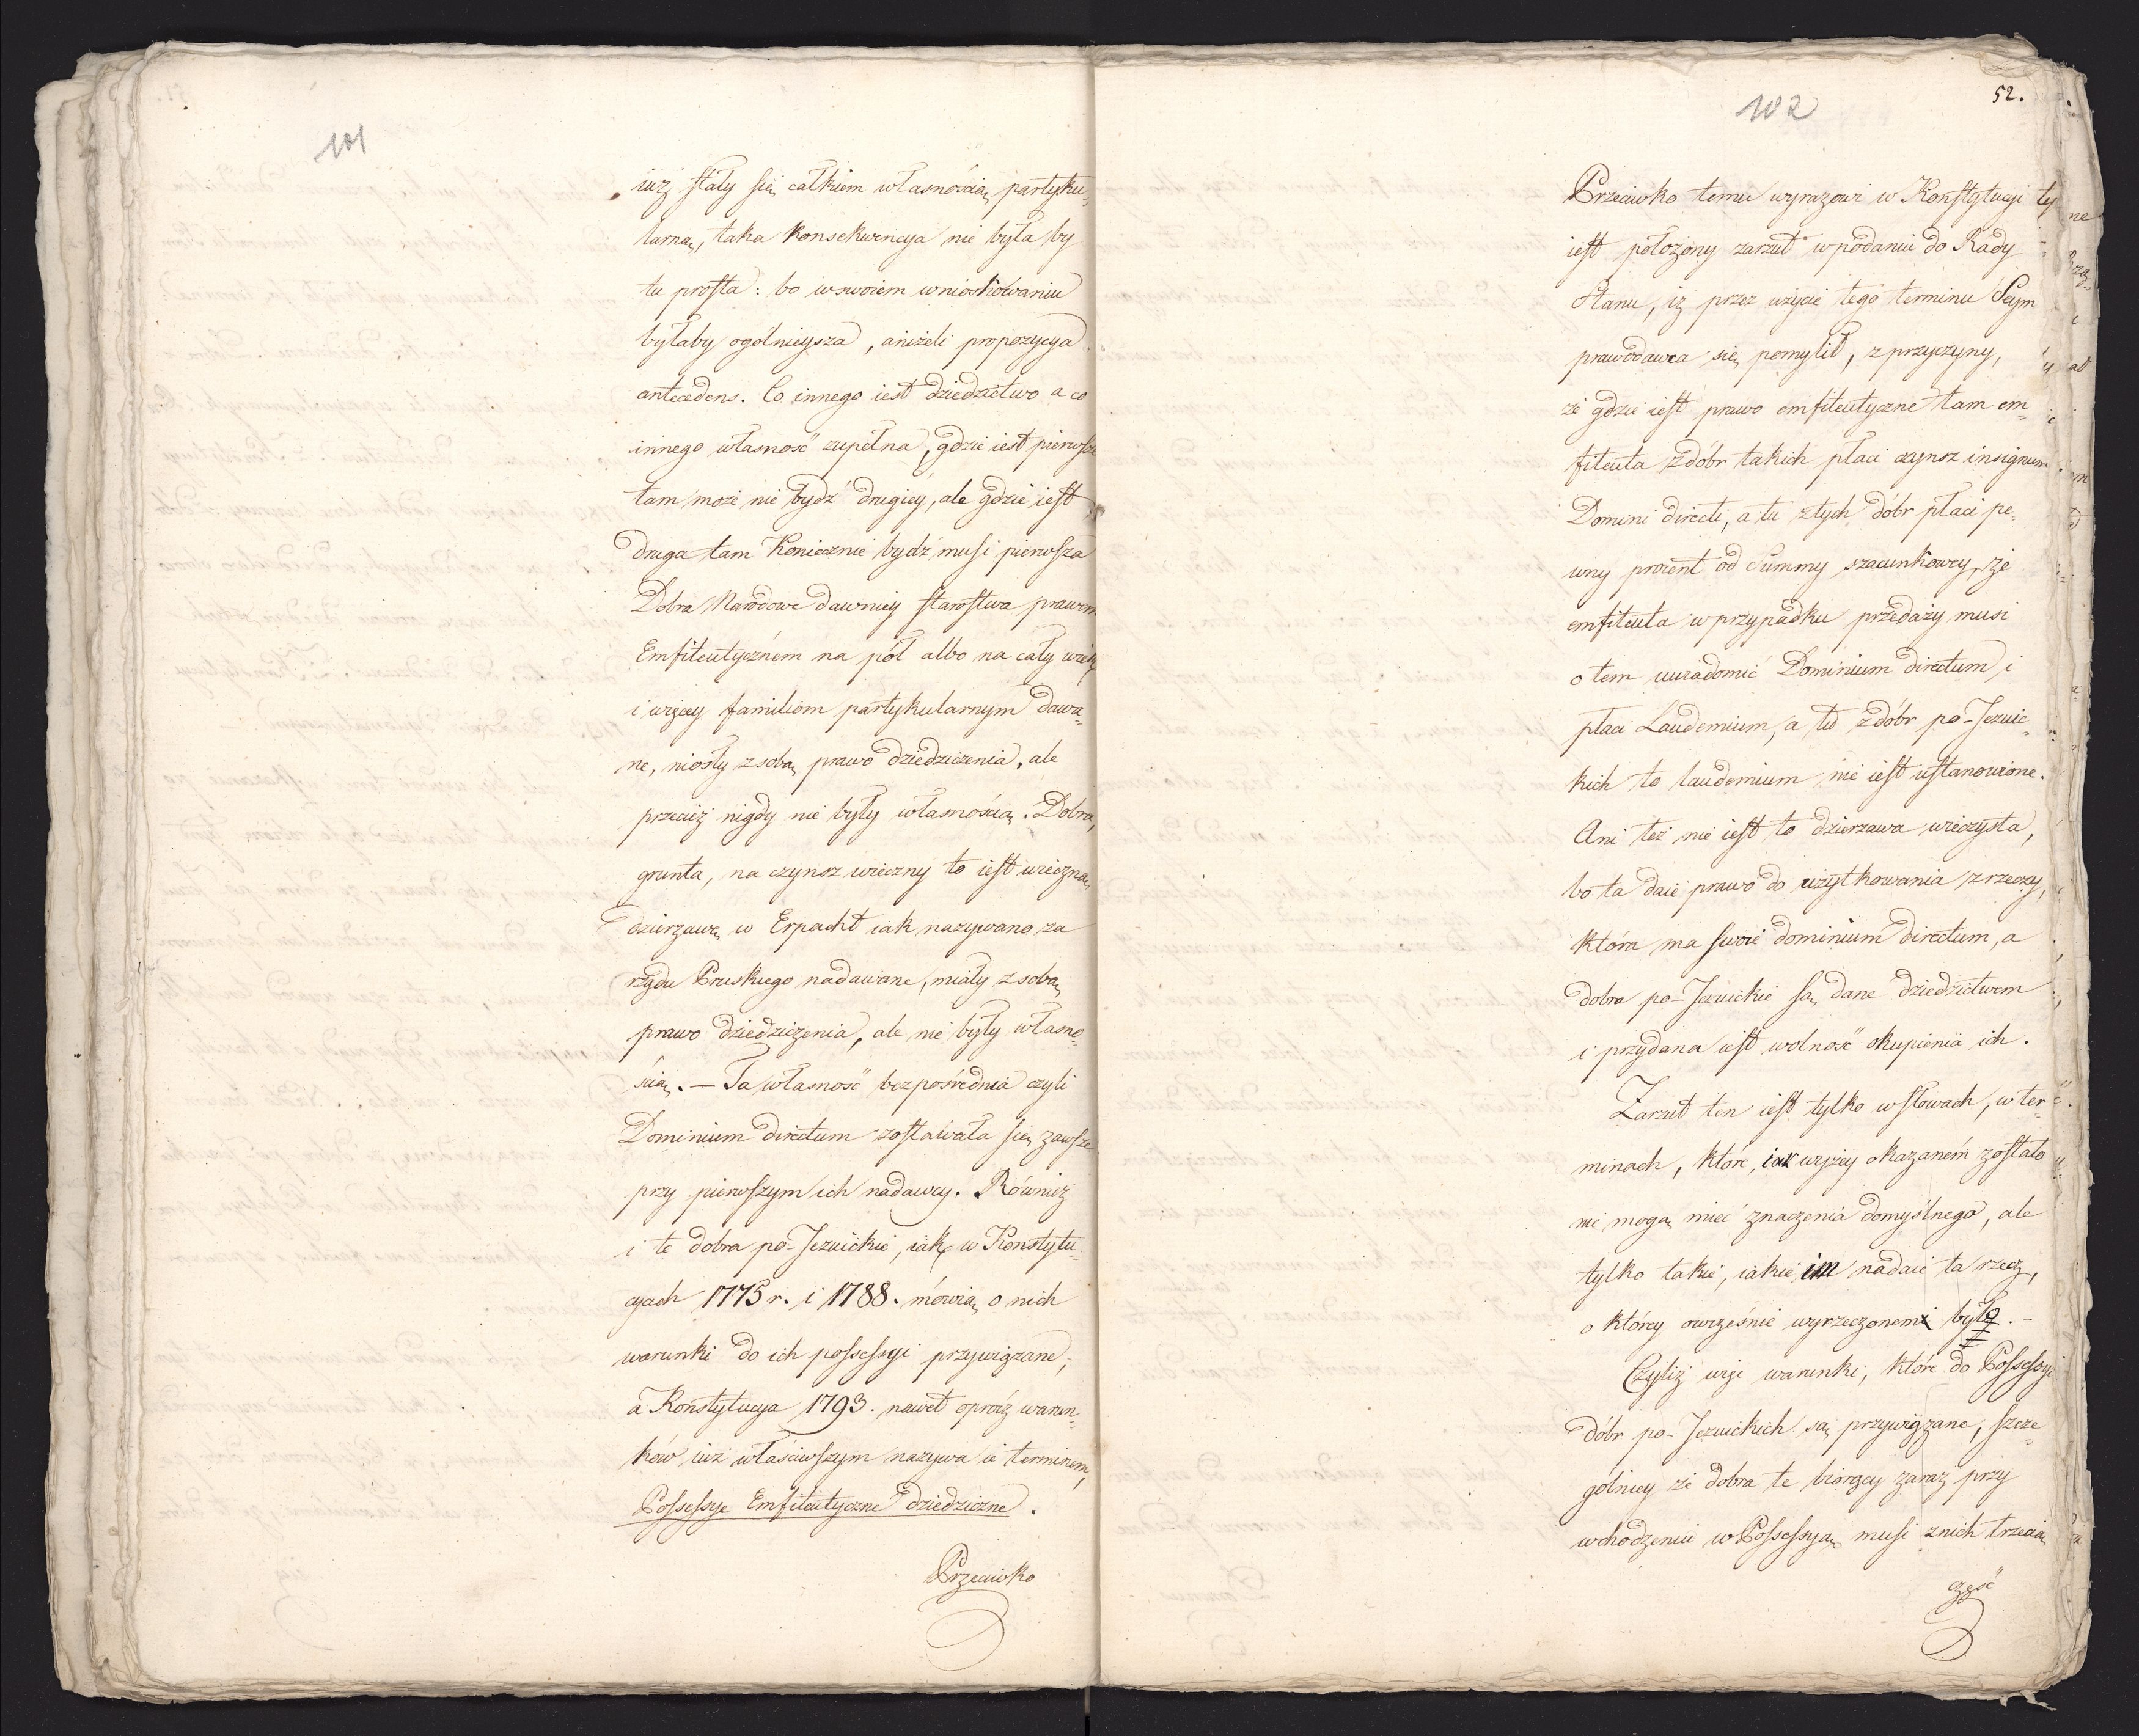 101
iuż stały się całkiem własnością partyku-
larną, taka konsekwencya nie była by
tu prosta: bo w swoiem wnioskowaniu
byłaby ogólnieysza, aniżeli propozycya
antecedens. Co innego iest dziedzictwo a co
innego własność zupełna, gdzie iest pierwsze
tam może nie bydź drugiéy, ale gdzie iest
druga tam koniecznie bydź musi pierwsza
Dobra Narodowe dawniey starostwa prawem
Emfiteutycznem na pół albo na cały wiek
i więcey familiom partykularnym dawa-
ne, niosły z sobą prawo dziedziczenia, ale
przecież nigdy nie były własnością. Dobra,
grunta, na czynsz wieczny to iest wieczną
dzierżawę w Erpacht iak nazywano za
rządu Pruskiego nadawane, miały z sobą
prawo dziedziczenia, ale nie były własno-
ścią. — Ta własność bezpośrednia czyli
Dominium directum zostawała się zawsze
przy pierwszym ich nadawcy. Również
i te dobra po-Jezuickie, iak w Konstytu-
cyach 1775 r. i 1788. mówią o nich
warunki do ich possessyi przywiązane;
a Konstytucya 1793. nawet oprócz warun-
ków iuż właściwszym nazywa ie terminem,
Possessye Emfiteutyczne dziedziczne.
Przeciwko
102
52.
Przeciwko temu wyrazowi w Konstytucyi
iest położony zarzut w podaniu do Rady
Stanu, iż przez użycie tego terminu Seym
prawodawca się pomylił, z przyczyny,
że gdzie iest prawo emfiteutyczne tam em-
fiteuta z dóbr takich płaci czynsz in signum
Domini directi, a tu z tych dóbr płaci pe-
wny procent od Summy szacunkowey, że
emfiteuta w przypadku przedaży musi
o tem uwiadomić Dominium directum, i
płaci Laudemium, a tu z dóbr po-Jezuic-
kich to laudemium nie iest ustanowione.
Ani też nie iest to dzierżawa wieczysta,
bo ta daie prawo do użytkowania z rzeczy,
która ma swoie dominium directum, a
dobra po-Jezuickie są dane dziedzictwem
i przydana iest wolność okupienia ich.
Zarzut ten iest tylko w słowach, w ter-
minach, które, iak wyżey okazaném zostało
nie mogą mieć znaczenia domyślnego, ale
tylko takie, iakie im nadaie ta rzecz,
o którey owcześnie wyrzeczonem było. -
Czyliż więc warunki, które do Possessyi
dóbr po-Jezuickich są przywiązane, szcze-
gólniey że dobra te biorący zaraz przy
wchodzeniu w Possessyą musi z nich trzecią
część